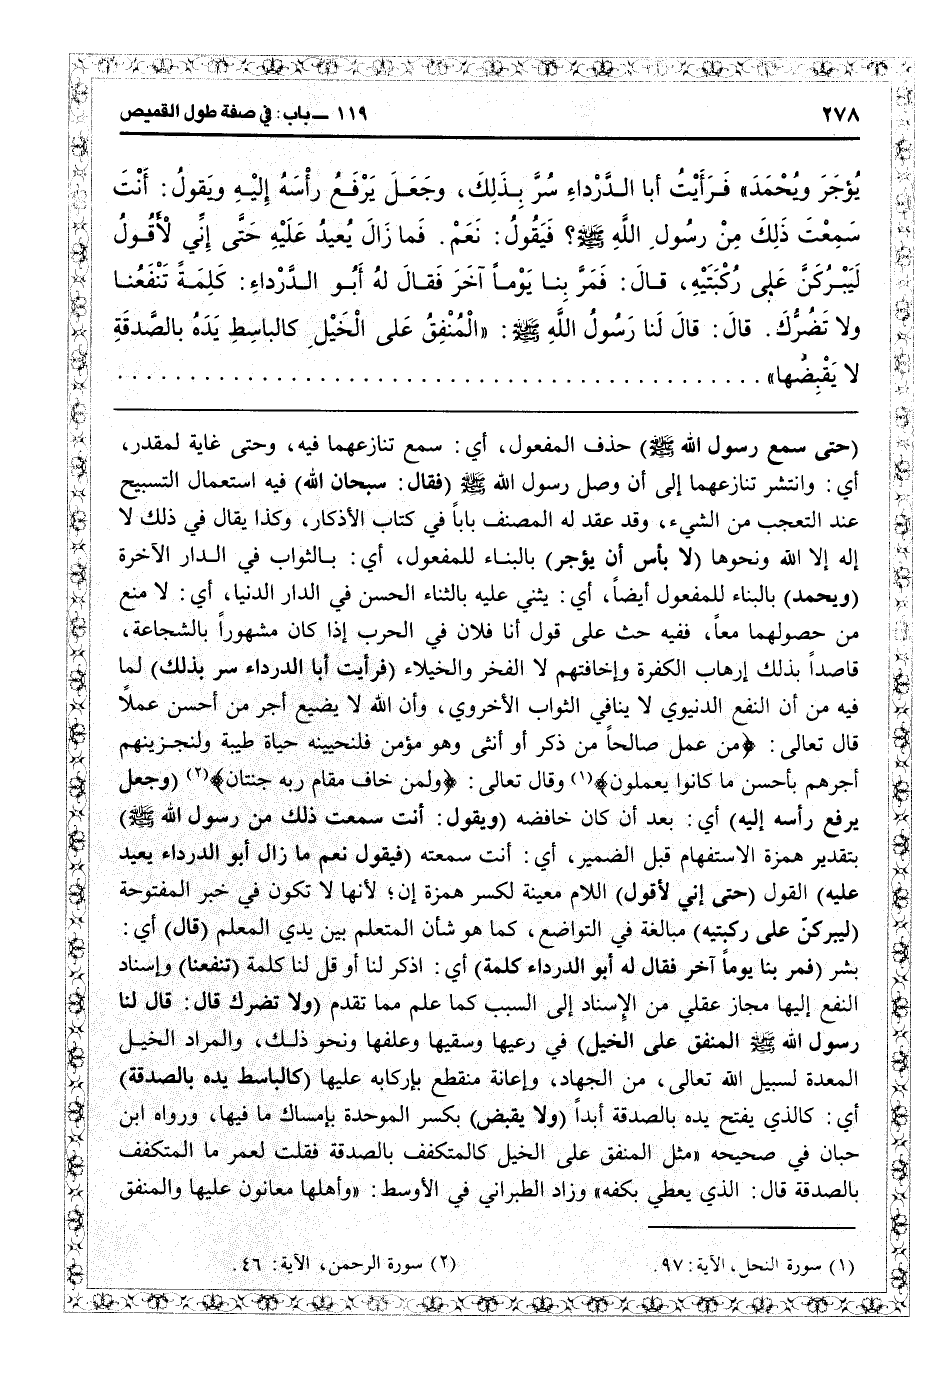 ٢٧٨
١١٩ ــ باب: في صفة طول القميص
يُؤجَرَ ويُحْمَدَ» فَرَأَيْتُ أبا الدَّرْداءِ سُرَّ بِذَلِكَ، وجَعَلَ يَرْفَعُ رأْسَهُ إِلَيْهِ ويَقولُ: أَنْتَ
سَمِعْتَ ذَلِكَ مِنْ رسُولِ اللَّهِ ﷺ؟ فَيَقُولُ: نَعَمْ. فَما زالَ يُعيدُ عَلَيْهِ حَتَّى إنِّي لأَقُولُ
لَيَبْرُكَنَّ عَلى رُكْبَتَيْهِ، قالَ: فَمَرَّ بِنا يَوْماً آخَرَ فَقالَ لهُ أَبُو الدَّرْداءِ: كَلِمَةً تَنْفَعُنا
ولا تَضُرُّكَ. قالَ: قالَ لَنا رَسُولُ اللَّهِ ﷺ: «الْمُنْفِقُ عَلى الْخَيْلِ كالباسِطِ يَدَهُ بالصَّدقَةِ
لا يَقْبِضُها» . . . . . . . . . . . . . . . . . . . . . . . . . . . . . . . . . . . . . . . . . . . . .
(حتى سمع رسول الله ﷺ) حذف المفعول، أي: سمع تنازعهما فيه، وحتى غاية لمقدر،
أي: وانتشر تنازعهما إلى أن وصل رسول الله ﷺ (فقال: سبحان الله) فيه استعمال التسبيح
عند التعجب من الشيء، وقد عقد له المصنف باباً في كتاب الأذكار، وكذا يقال في ذلك لا
إله إلا الله ونحوها (لا بأس أن يؤجر) بالبناء للمفعول، أي: بالثواب في الدار الآخرة
(ويحمد) بالبناء للمفعول أيضاً، أي: يثني عليه بالثناء الحسن في الدار الدنيا، أي: لا منع
من حصولهما معاً، ففيه حث على قول أنا فلان في الحرب إذا كان مشهوراً بالشجاعة،
قاصداً بذلك إرهاب الكفرة وإخافتهم لا الفخر والخيلاء (فرأيت أبا الدرداء سر بذلك) لما
فيه من أن النفع الدنيوي لا ينافي الثواب الأخروي، وأن الله لا يضيع أجر من أحسن عملاً
قال تعالى: ﴿من عمل صالحاً من ذكر أو أنثى وهو مؤمن فلنحيينه حياة طيبة ولنجزينهم
أجرهم بأحسن ما كانوا يعملون﴾(١) وقال تعالى: ﴿ولمن خاف مقام ربه جنتان﴾(٢) (وجعل
يرفع رأسه إليه) أي: بعد أن كان خافضه (ويقول: أنت سمعت ذلك من رسول الله ﷺ)
بتقدير همزة الاستفهام قبل الضمير، أي: أنت سمعته (فيقول نعم ما زال أبو الدرداء يعيد
عليه) القول (حتى إني لأقول) اللام معينة لكسر همزة إن؛ لأنها لا تكون في خبر المفتوحة
(ليبركنّ على ركبتيه) مبالغة في التواضع، كما هو شأن المتعلم بين يدي المعلم (قال) أي:
بشر (فمر بنا يوماً آخر فقال له أبو الدرداء كلمة) أي: اذكر لنا أو قل لنا كلمة (تنفعنا) وإسناد
النفع إليها مجاز عقلي من الإِسناد إلى السبب كما علم مما تقدم (ولا تضرك قال: قال لنا
رسول الله ﷺ المنفق على الخيل) في رعيها وسقيها وعلفها ونحو ذلك، والمراد الخيل
المعدة لسبيل الله تعالى، من الجهاد، وإعانة منقطع بإركابه عليها (كالباسط يده بالصدقة)
أي: كالذي يفتح يده بالصدقة أبداً (ولا يقبض) بكسر الموحدة بإمساك ما فيها، ورواه ابن
حبان في صحيحه «مثل المنفق على الخيل كالمتكفف بالصدقة فقلت لعمر ما المتكفف
بالصدقة قال: الذي يعطي بكفه» وزاد الطبراني في الأوسط: «وأهلها معانون عليها والمنفق
(١) سورة النحل، الآية: ٩٧.
(٢) سورة الرحمن، الآية: ٤٦.